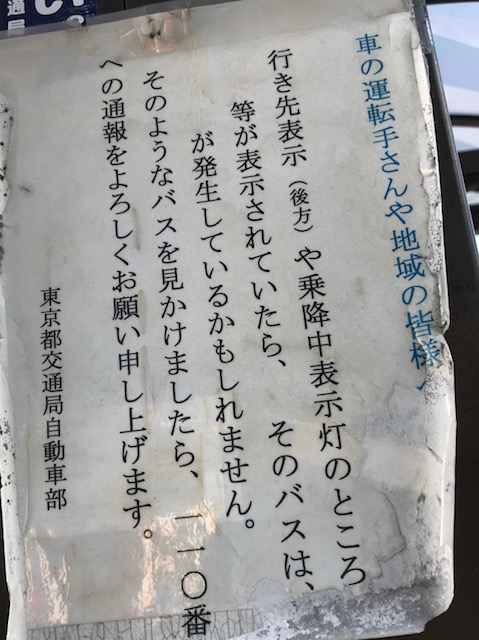 車の運転手さんや地域の皆様へ
行き先表示（後方）や乗降中表示灯のところ
等が表示されていたら、　そのバスは、
が発生しているかもしれません。
そのようなバスを見かけましたら、一一〇番
への通報をよろしくお願い申し上げます。
東京都交通局自動車部
通局